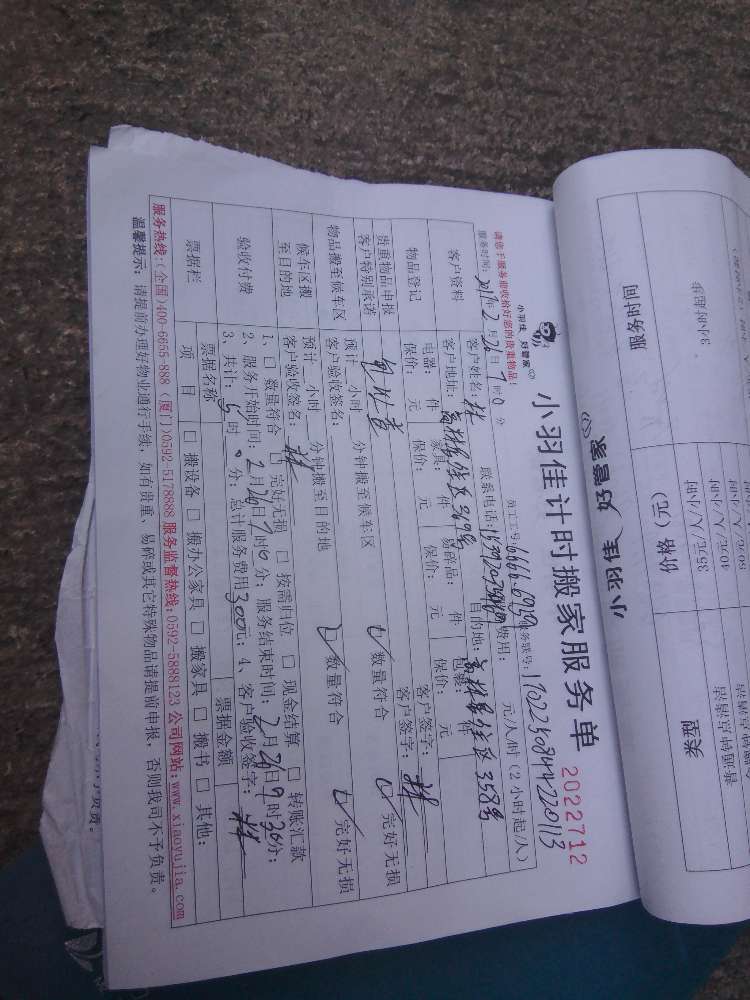 小羽佳 好管家
小羽佳计时搬家服务单
2022712
请您于服务前收检好您的贵重物品!
员工工号:
服务账号: 170225084447220113
服务时间: 2017年2月26日 时0分
客户资料
客户姓名: 林
联系电话:
费用: 元/人/时 (2小时起/人)
客户地址: 高林居住区369号
目的地: 高林居住区358号
物品登记
电器: 件 家具: 件 易碎品: 件 包装: 件
保价: 元 保价: 元 保价: 元 保价: 元
贵重物品申报
客户特别承诺
客户签字: 林
客户签字:
物品搬至候车区
预计 小时 分钟搬至候车区
客户验收签名:
数量符合
完好无损
候车区搬
至目的地
预计 小时 分钟搬至目的地
客户验收签名: 林
数量符合
完好无损
验收付费
1、□ 数量符合 □ 完好无损 □ 按需归位 □ 现金结算 □ 转账汇款
2、服务开始时间: 2月26日7时0分; 服务结束时间: 2月26日9时30分;
3、共计: 5时0分; 总计服务费用300元; 4、客户验收签字: 林
票据栏
票据名称
票据金额
项 目 □ 搬设备 □ 搬办公家具 □ 搬家具 □ 搬书 □ 其他:
服务热线:(全国)400-6655-888 (厦门)0592-5178888 服务监督热线:0592-5888123 公司网站:www.xiaoyujia.com
温馨提示: 请提前办理好物业通行手续, 如有贵重、易碎或其它特殊物品请提前申报, 否则我司不予负责。
小羽佳 好管家
服务时间
价格(元)
类型
3小时起步
35元/人/小时
40元/人/小时
不予负责。